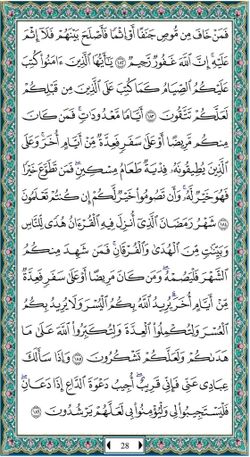 فَمَنْ خَافَ مِن مُّوصٍ جَنَفًا أَوْ إِثْمًا فَأَصْلَحَ بَيْنَهُمْ فَلَا إِثْمَ
عَلَيْهِ إِنَّ اللَّهَ غَفُورٌ رَّحِيمٌ ١٨٢ يَا أَيُّهَا الَّذِينَ ءَامَنُوا كُتِبَ
عَلَيْكُمُ الصِّيَامُ كَمَا كُتِبَ عَلَى الَّذِينَ مِن قَبْلِكُمْ
لَعَلَّكُمْ تَتَّقُونَ ١٨٣ أَيَّامًا مَّعْدُودَاتٍ فَمَن كَانَ
مِنكُم مَّرِيضًا أَوْ عَلَى سَفَرٍ فَعِدَّةٌ مِّنْ أَيَّامٍ أُخَرَ وَعَلَى
الَّذِينَ يُطِيقُونَهُ فِدْيَةٌ طَعَامُ مِسْكِينٍ فَمَن تَطَوَّعَ خَيْرًا
فَهُوَ خَيْرٌ لَّهُ وَأَن تَصُومُوا خَيْرٌ لَّكُمْ إِن كُنتُمْ تَعْلَمُونَ
١٨٤ شَهْرُ رَمَضَانَ الَّذِي أُنزِلَ فِيهِ الْقُرْءَانُ هُدًى لِّلنَّاسِ
وَبَيِّنَاتٍ مِّنَ الْهُدَى وَالْفُرْقَانِ فَمَن شَهِدَ مِنكُمُ
الشَّهْرَ فَلْيَصُمْهُ وَمَن كَانَ مَرِيضًا أَوْ عَلَى سَفَرٍ فَعِدَّةٌ
مِّنْ أَيَّامٍ أُخَرَ يُرِيدُ اللَّهُ بِكُمُ الْيُسْرَ وَلَا يُرِيدُ بِكُمُ
الْعُسْرَ وَلِتُكْمِلُوا الْعِدَّةَ وَلِتُكَبِّرُوا اللَّهَ عَلَى مَا
هَدَاكُمْ وَلَعَلَّكُمْ تَشْكُرُونَ ١٨٥ وَإِذَا سَأَلَكَ
عِبَادِي عَنِّي فَإِنِّي قَرِيبٌ أُجِيبُ دَعْوَةَ الدَّاعِ إِذَا دَعَانِ
فَلْيَسْتَجِيبُوا لِي وَلْيُؤْمِنُوا بِي لَعَلَّهُمْ يَرْشُدُونَ ١٨٦
28